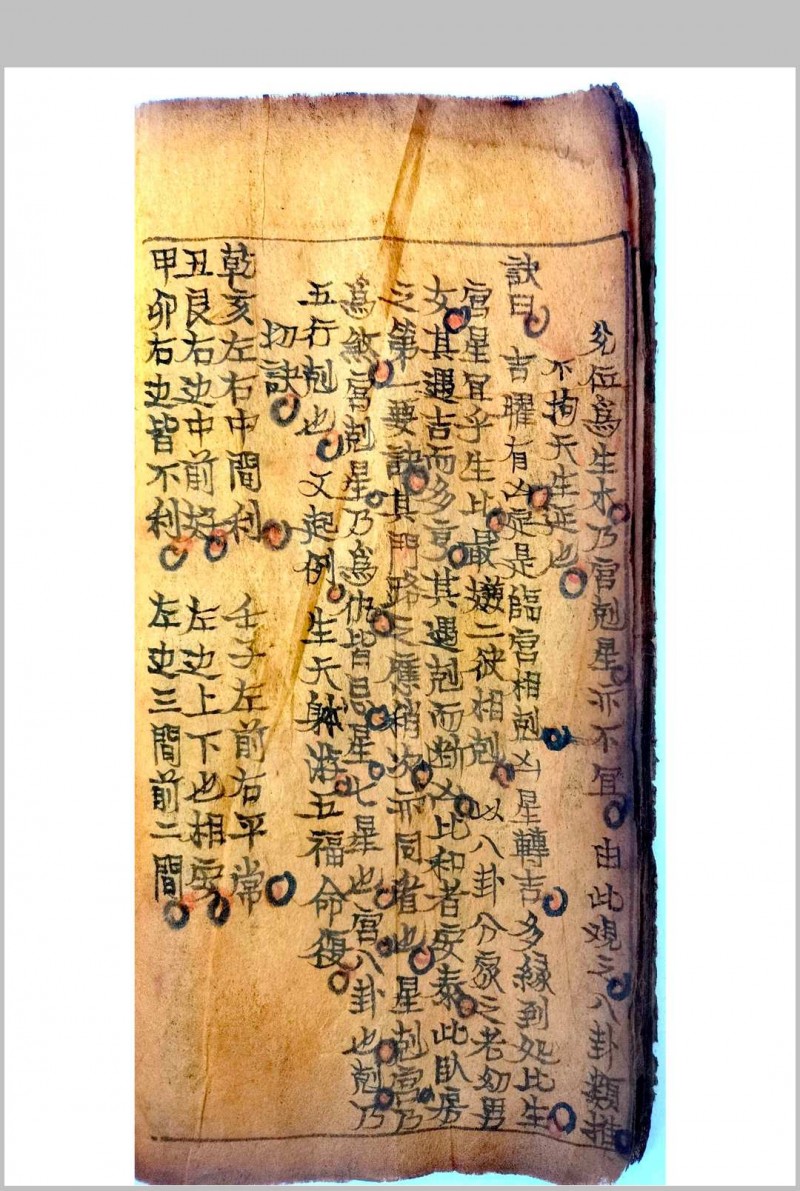 兊位為生木乃宮剋星亦不宜 由此观之八卦類推
不拘天生延也
訣曰 吉曜有凶是臨宮相剋凶星轉吉多緣到処比生
宮星宜乎生比最嫌二彼相剋 以八卦分之老幼男
女其遇吉而多亨其遇剋而断凶比和者安泰此卧房
之第一要訣其門路之應稍次亦同者也星剋宮乃
為煞宮剋星乃為仇皆忌星七星也宮八卦也剋乃
五行剋也 又起例 生天躰游五福命復
切訣
乾亥左右中間利 壬子左前右平常
丑艮右边中前好 左边上下也相安
甲卯右边皆不利 左边三間前二間